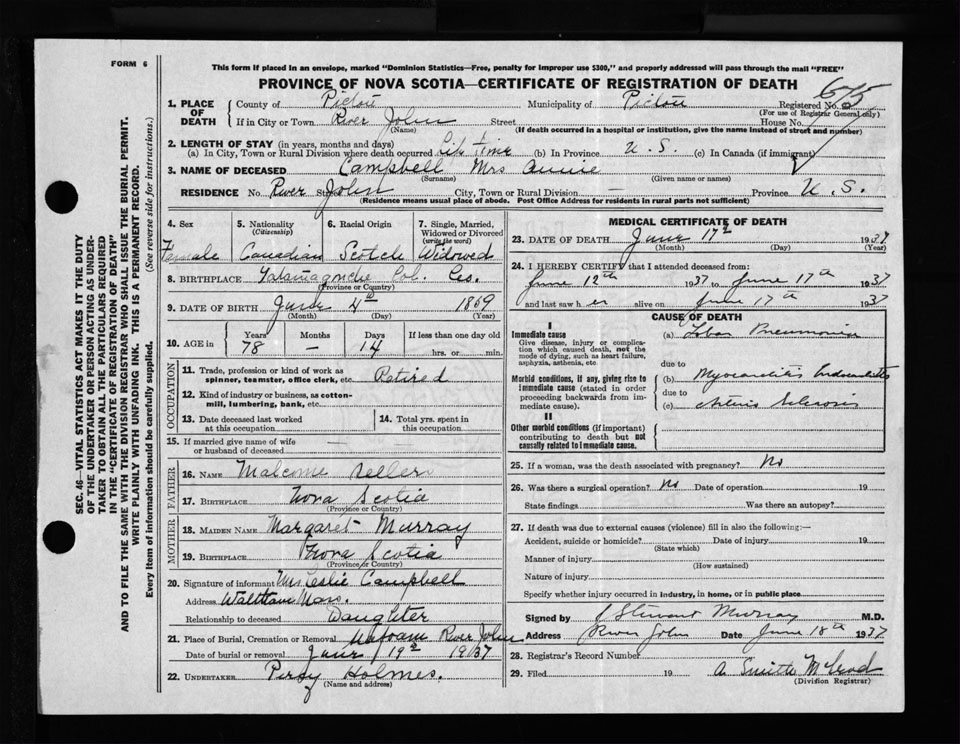 FORM 6
This form if placed in an envelope, marked "Dominion Statistics—Free, penalty for improper use $300," and properly addressed will pass through the mail "FREE"
PROVINCE OF NOVA SCOTIA—CERTIFICATE OF REGISTRATION OF DEATH
SEC. 46—VITAL STATISTICS ACT MAKES IT THE DUTY
OF THE UNDERTAKER OR PERSON ACTING AS UNDER-
TAKER TO OBTAIN ALL THE PARTICULARS REQUIRED
IN THE "CERTIFICATE OF REGISTRATION OF DEATH"
AND TO FILE THE SAME WITH THE DIVISION REGISTRAR WHO SHALL ISSUE THE BURIAL PERMIT.
WRITE PLAINLY WITH UNFADING INK. THIS IS A PERMANENT RECORD.
Every item of information should be carefully supplied. (See reverse side for instructions.)
1. PLACE OF DEATH County of Pictou Municipality of Pictou Registered No.
(For use of Registrar General only)
If in City or Town River John Street House No.
(Name) (If death occurred in a hospital or institution, give the name instead of street and number)
2. LENGTH OF STAY (in years, months and days)
(a) In City, Town or Rural Division where death occurred Life Time (b) In Province U.S. (c) In Canada (if immigrant)
3. NAME OF DECEASED Campbell Mrs Annie
(Surname) (Given name or names)
RESIDENCE No. River John Street City, Town or Rural Division — Province U.S.
(Residence means usual place of abode. Post Office Address for residents in rural parts not sufficient)
4. Sex Female
5. Nationality (Citizenship) Canadian
6. Racial Origin Scotch
7. Single, Married, Widowed or Divorced (write the word) Widowed
8. BIRTHPLACE Tatamagouche Col. Co.
(Province or Country)
9. DATE OF BIRTH June 4th 1859
(Month) (Day) (Year)
10. AGE in Years 78 Months — Days 14 If less than one day old hrs. or min.
OCCUPATION
11. Trade, profession or kind of work as spinner, teamster, office clerk, etc. Retired
12. Kind of industry or business, as cotton-mill, lumbering, bank, etc.
13. Date deceased last worked at this occupation
14. Total yrs. spent in this occupation
15. If married give name of wife or husband of deceased —
FATHER
16. NAME Malcome Sellers
17. BIRTHPLACE Nova Scotia
(Province or Country)
MOTHER
18. MAIDEN NAME Margaret Murray
19. BIRTHPLACE Nova Scotia
(Province or Country)
20. Signature of informant Mrs Leslie Campbell
Address Waltham Mass.
Relationship to deceased Daughter
21. Place of Burial, Cremation or Removal River John
Date of burial or removal June 19th 1937
22. UNDERTAKER Percy Holmes.
(Name and address)
MEDICAL CERTIFICATE OF DEATH
23. DATE OF DEATH June 17th 1937
(Month) (Day) (Year)
24. I HEREBY CERTIFY that I attended deceased from:
June 12th 1937 to June 17th 1937
and last saw her alive on June 17th 1937
CAUSE OF DEATH
I
Immediate cause
Give disease, injury or complication which caused death, not the mode of dying, such as heart failure, asphyxia, asthenia, etc.
(a) Lobar Pneumonia
due to
Morbid conditions, if any, giving rise to immediate cause (stated in order proceeding backwards from immediate cause).
(b) Myocarditis
due to
(c) Arterio Sclerosis
II
Other morbid conditions (if important) contributing to death but not causally related to immediate cause.
25. If a woman, was the death associated with pregnancy? No
26. Was there a surgical operation? No Date of operation 19
State findings Was there an autopsy?
27. If death was due to external causes (violence) fill in also the following:—
Accident, suicide or homicide? Date of injury 19
(State which)
Manner of injury
(How sustained)
Nature of injury
Specify whether injury occurred in industry, in home, or in public place
Signed by J Stewart Murray M.D.
Address River John Date June 18th 1937
28. Registrar's Record Number
29. Filed 19 A Smith McLeod
(Division Registrar)